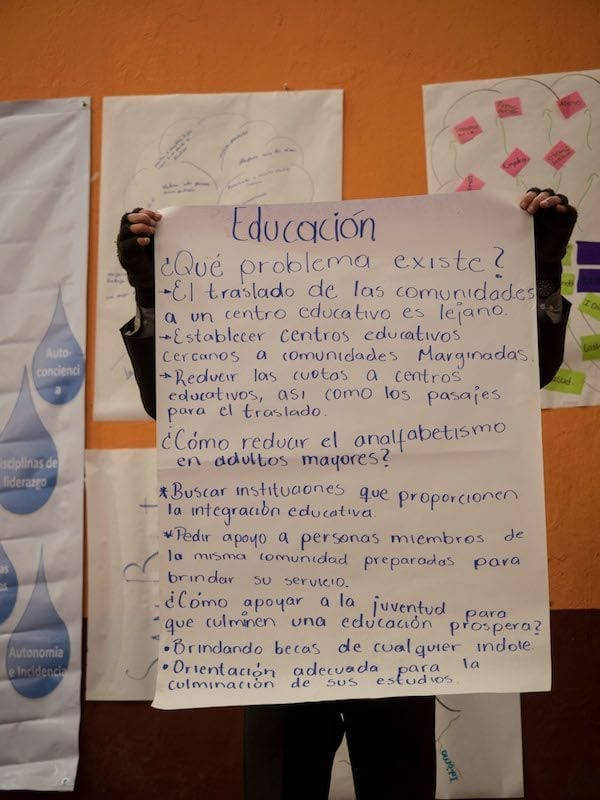 Educación
¿Qué problema existe?
→El traslado de las comunidades
a un centro educativo es lejano.
→Establecer centros educativos
cercanos a comunidades Marginadas.
→Reducir las cuotas a centros
educativos, asi como los pasajes
para el traslado.
¿Cómo reducir el analfabetismo
en adultos mayores?
*Buscar instituciones que proporcionen
la integración educativa.
*Pedir apoyo a personas miembros de
la misma comunidad preparadas para
brindar su servicio.
¿Cómo apoyar a la juventud para
que culminen una educación prospera?
•Brindando becas de cualquier indole.
•Orientación adecuada para la
culminación de sus estudios.
Auto-
concienci
a
isciplinas de
liderazgo
Autonomía
e Incidencia
Empleo